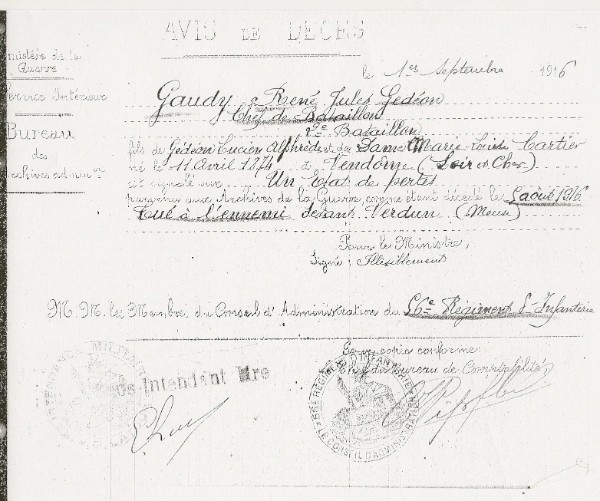 AVIS DE DECES
Ministère de la
Guerre
Service Intérieur
Bureau
des
Archives admves
le 1er Septembre 1916
Gaudy, René Jules Gédéon
Chef de Bataillon
2e Bataillon
fils de Gédéon Lucien Alphrède et de Dame Marie Louise Cartier
né le 11 Avril 1874 à Vendôme (Loir et Cher)
été signalé sur Un Etat de pertes
parvenu aux Archives de la Guerre, comme étant décédé le 5 août 1916
Tué à l'ennemi devant Verdun (Meuse)
Pour le Ministre,
Signé :
M.M. les Membres du Conseil d'Administration du 56e Régiment d'Infanterie
Pour copie conforme
Chef du Bureau de Comptabilité
INTENDANCE MILITAIRE
Sous Intendant Mre
RÉGIMENT D'INFANTERIE
LE CONSEIL D'ADMINISTRATION